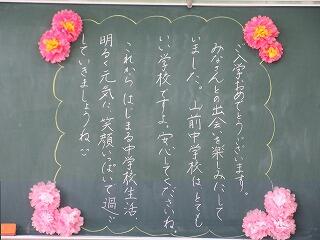 ご入学おめでとうございます。
みなさんとの出会いを楽しみにして
いました。山前中学校は、とても
いい学校ですよ。安心してくださいね。
これから はじまる中学校生活
明るく元気に 笑顔いっぱいで過ご
していきましょうね！！